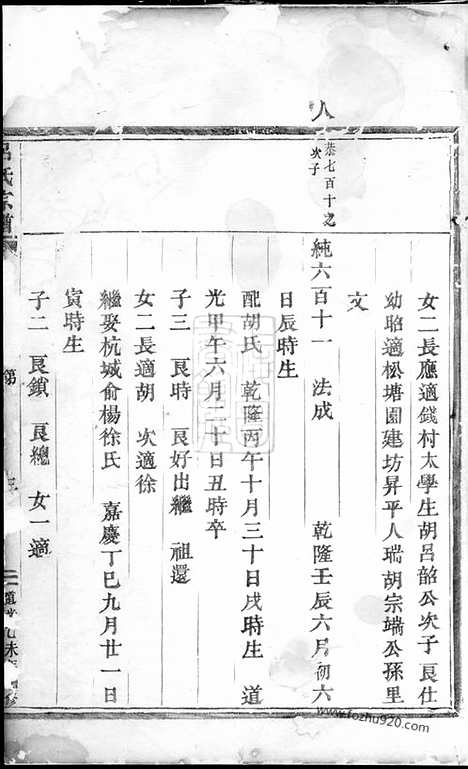 女二長應適錢村太學生胡呂韶公次子良仕
幼昭適松塘園建坊昇平人瑞胡宗端公孫里
文
八
恭七百十之
次子
純六百十一 法成 乾隆壬辰六月初六
日辰時生
配胡氏 乾隆丙午十月三十日戌時生 道
光甲午六月二十日丑時卒
子三 良時 良好出繼 祖還
女二長適胡 次適徐
繼娶杭城俞楊徐氏 嘉慶丁巳九月廿一日
寅時生
子二 良鎖 良總 女一適
呂氏宗譜
第
www.fozhu920.com